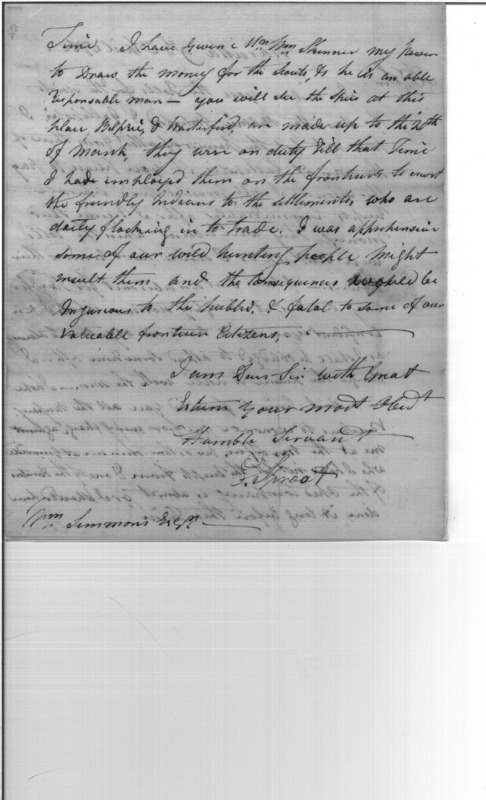 Time. I have Given Wm Wm Skinner my power
to Draw the money for the Scouts, & he is an able
responsable man — you will see the Spies at this
place Belprie, & Waterford, are made up to the 20th
of March, they were on duty till that Time
I had employed them on the frontiers to escort
the friendly Indians to the settlements who are
daily flocking in to trade. I was apprehensive
some of our wild hunting people might
insult them and the Consequences would be
Injurious to the publick, & fatal to some of our
Valuable frontier Citizens,
I am Dear Sir with Great
Esteem your most Obedt
Humble Servant
E. Sproat
Wm Simmons Esqr